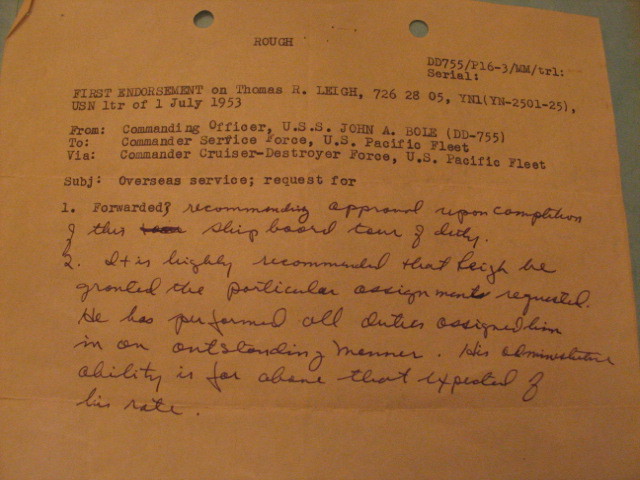 ROUGH
DD755/P16-3/MM/trl:
Serial:
FIRST ENDORSEMENT on Thomas R. LEIGH, 726 28 05, YN1(YN-2501-25),
USN ltr of 1 July 1953
From: Commanding Officer, U.S.S. JOHN A. BOLE (DD-755)
To: Commander Service Force, U.S. Pacific Fleet
Via: Commander Cruiser-Destroyer Force, U.S. Pacific Fleet
Subj: Overseas service; request for
1. Forwarded, recommending approval upon completion
of this ship board tour of duty.
2. It is highly recommended that Leigh be
granted the particular assignments requested.
He has performed all duties assigned him
in an outstanding manner. His administrative
ability is far above that expected of
his rate.